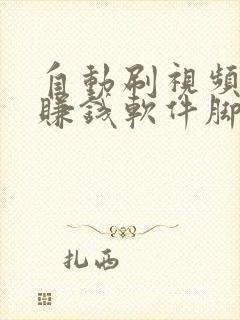 自動刷視頻
賺錢軟件腳
扎西